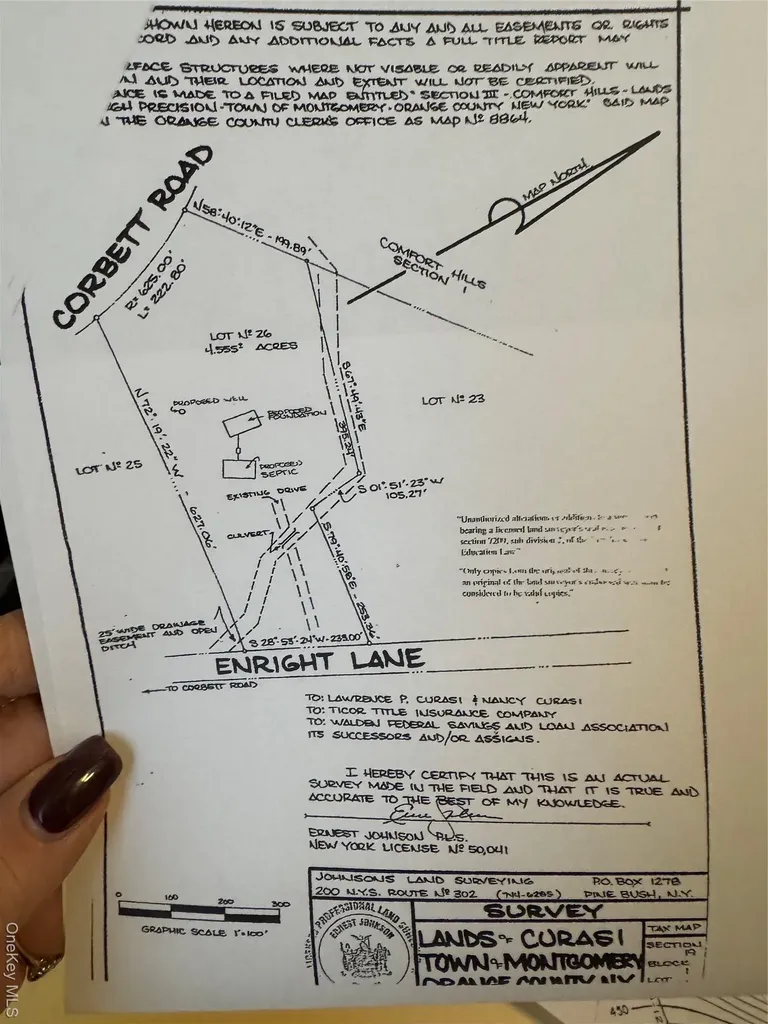 SHOWN HEREON IS SUBJECT TO ANY AND ALL EASEMENTS OR RIGHTS
CORD AND ANY ADDITIONAL FACTS A FULL TITLE REPORT MAY
RFACE STRUCTURES WHERE NOT VISABLE OR READILY APPARENT WILL
N AND THEIR LOCATION AND EXTENT WILL NOT BE CERTIFIED.
NCE IS MADE TO A FILED MAP ENTITLED "SECTION III - COMFORT HILLS - LANDS
GH PRECISION - TOWN OF MONTGOMERY - ORANGE COUNTY NEW YORK" SAID MAP
N THE ORANGE COUNTY CLERKS OFFICE AS MAP Nº 8864.
CORBETT ROAD
MAP NORTH
N 58°-40'-12"E - 199.89'
COMFORT HILLS
SECTION 1
R= 625.00'
L= 222.80'
LOT Nº 26
4.555± ACRES
S 67°-49'-43"E
395.24'
LOT Nº 23
PROPOSED WELL
PROPOSED
FOUNDATION
N 72°-19'-22" W - 627.06'
LOT Nº 25
PROPOSED
SEPTIC
S 01°-51'-23" W
105.27'
EXISTING DRIVE
CULVERT
S 79°-40'-58"E - 253.36'
"Unauthorized alterations or addition
bearing a licensed land surveyor's
section 7209, sub division 2, of the
Education Law"
"Only copies from the original of
an original of the land surveyor's
considered to be valid copies."
25' WIDE DRAINAGE
EASEMENT AND OPEN
DITCH
S 28°-53'-24" W - 233.00'
ENRIGHT LANE
TO CORBETT ROAD
TO: LAWRENCE P. CURASI & NANCY CURASI
TO: TICOR TITLE INSURANCE COMPANY
TO: WALDEN FEDERAL SAVINGS AND LOAN ASSOCIATION
ITS SUCCESSORS AND/OR ASSIGNS.
I HEREBY CERTIFY THAT THIS IS AN ACTUAL
SURVEY MADE IN THE FIELD AND THAT IT IS TRUE AND
ACCURATE TO THE BEST OF MY KNOWLEDGE.
ERNEST JOHNSON P.L.S.
NEW YORK LICENSE Nº 50,041
JOHNSONS LAND SURVEYING P.O. BOX 1278
200 N.Y.S. ROUTE Nº 302 (744-6285) PINE BUSH, N.Y.
0 100 200 300
GRAPHIC SCALE 1"=100'
PROFESSIONAL LAND
ERNEST JOHNSON
SURVEY
LANDS OF CURASI
TOWN OF MONTGOMERY
ORANGE COUNTY NY
TAX MAP
SECTION
19
BLOCK
1
LOT
450
OneKey MLS